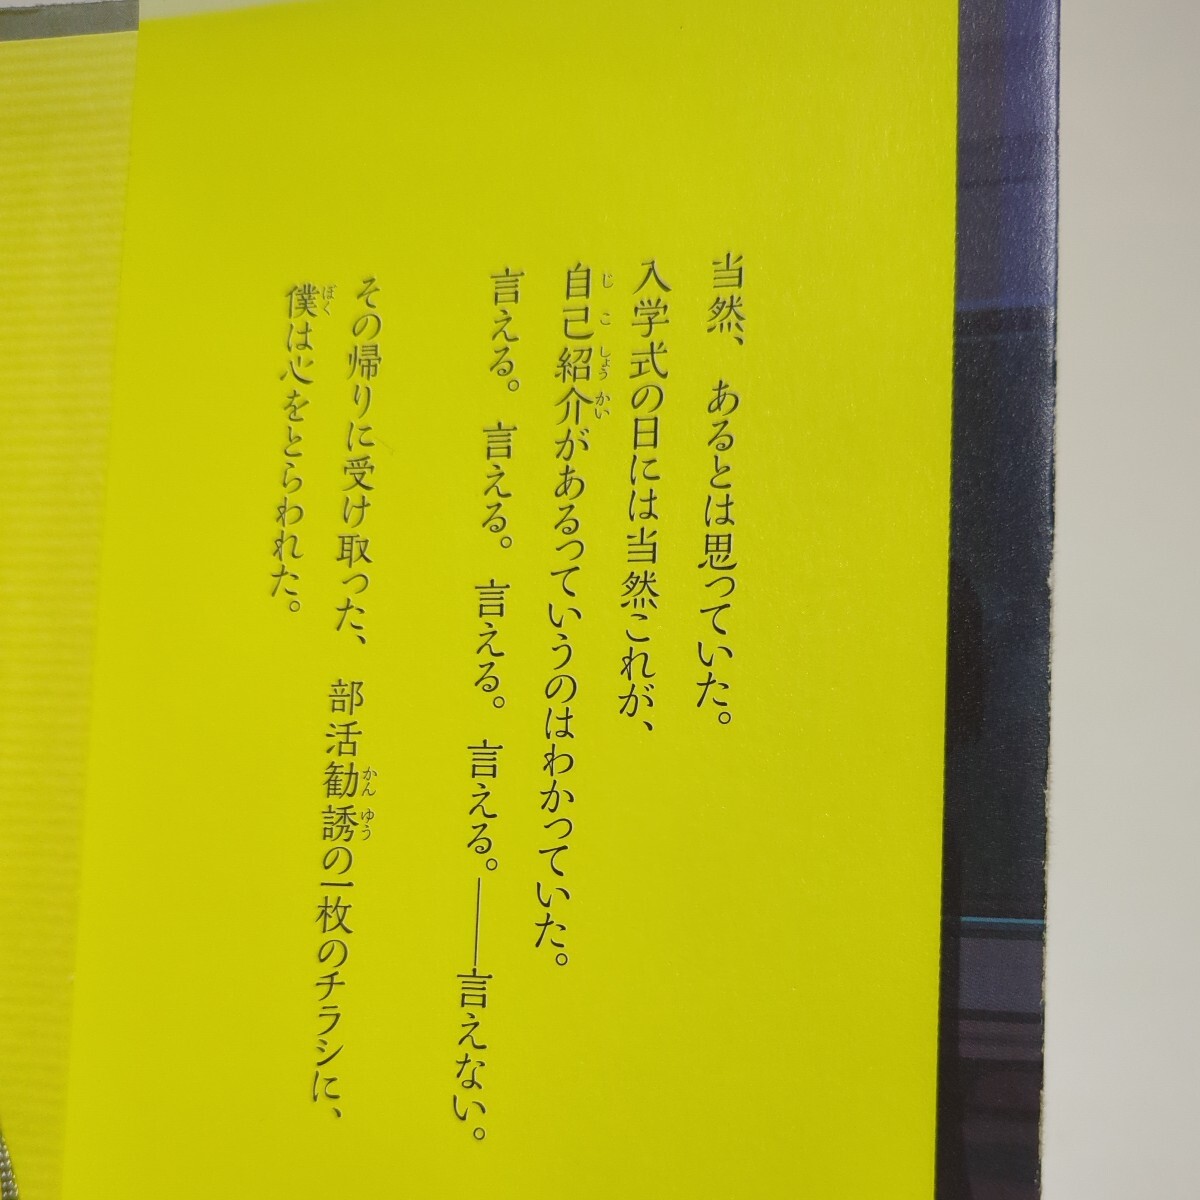 当然、あるとは思っていた。
入学式の日には当然これが、
自己紹介があるっていうのはわかっていた。
言える。言える。言える。言える。――言えない。
その帰りに受け取った、部活勧誘の一枚のチラシに、
僕は心をとらわれた。